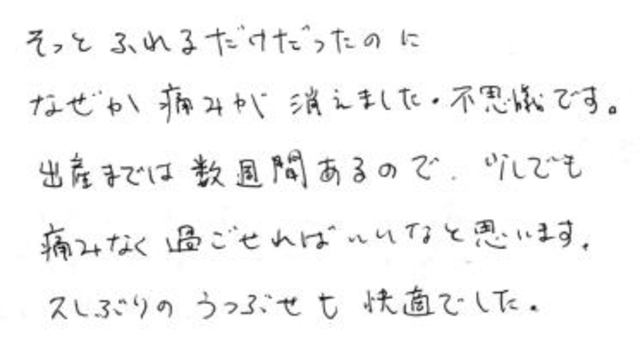 そっとふれるだけだったのに
なぜか痛みが消えました。不思議です。
出産までは数週間あるので、少しでも
痛みなく過ごせればいいなと思います。
久しぶりのうつぶせも快適でした。